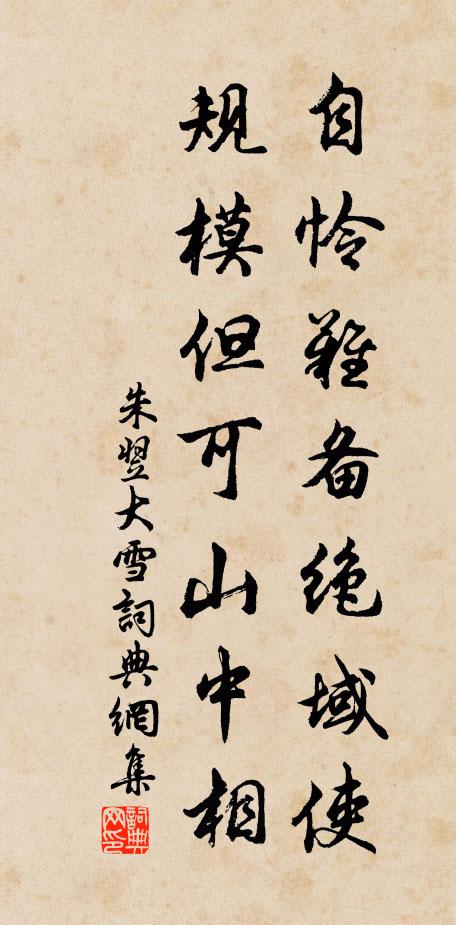 自怜难备绝域使
规模但可山中相
朱翌大雪詞典網集
詞典网印